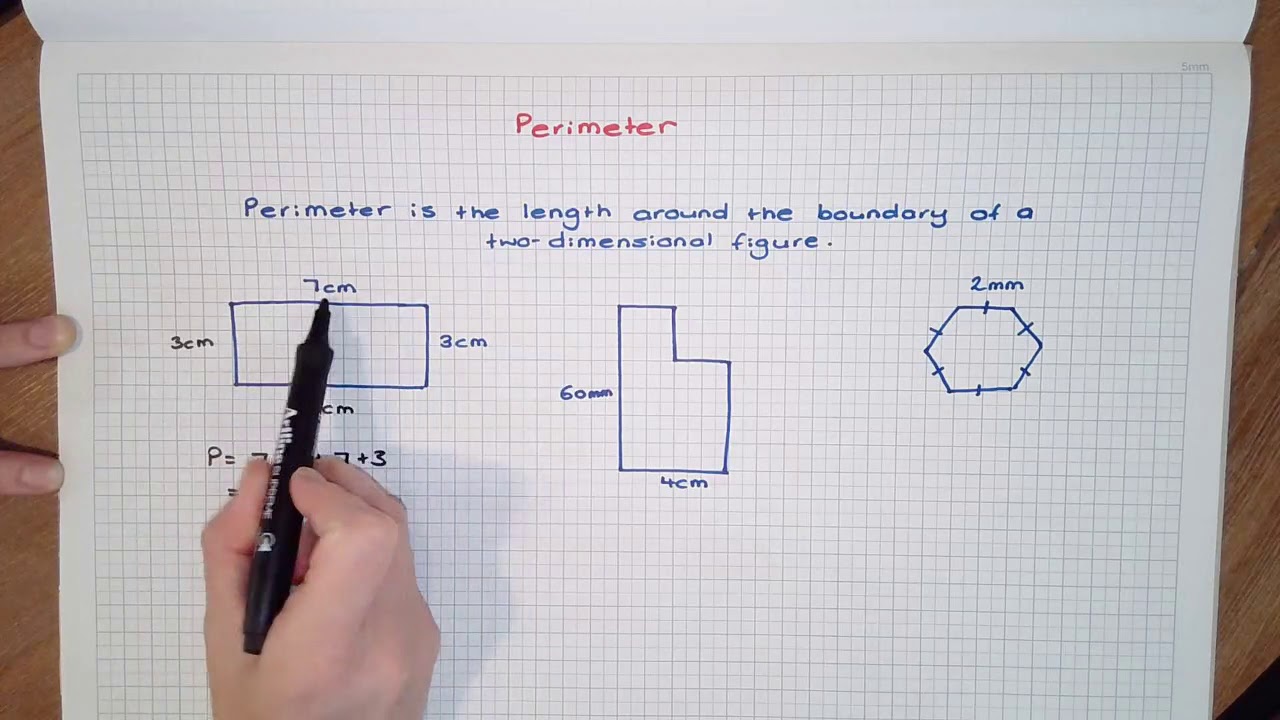 5mm
Perimeter
Perimeter is the length around the boundary of a
two-dimensional figure.
7cm
3cm
3cm
cm
P= 7 + 7+3
=
60mm
4cm
2mm
Artline SUPREME